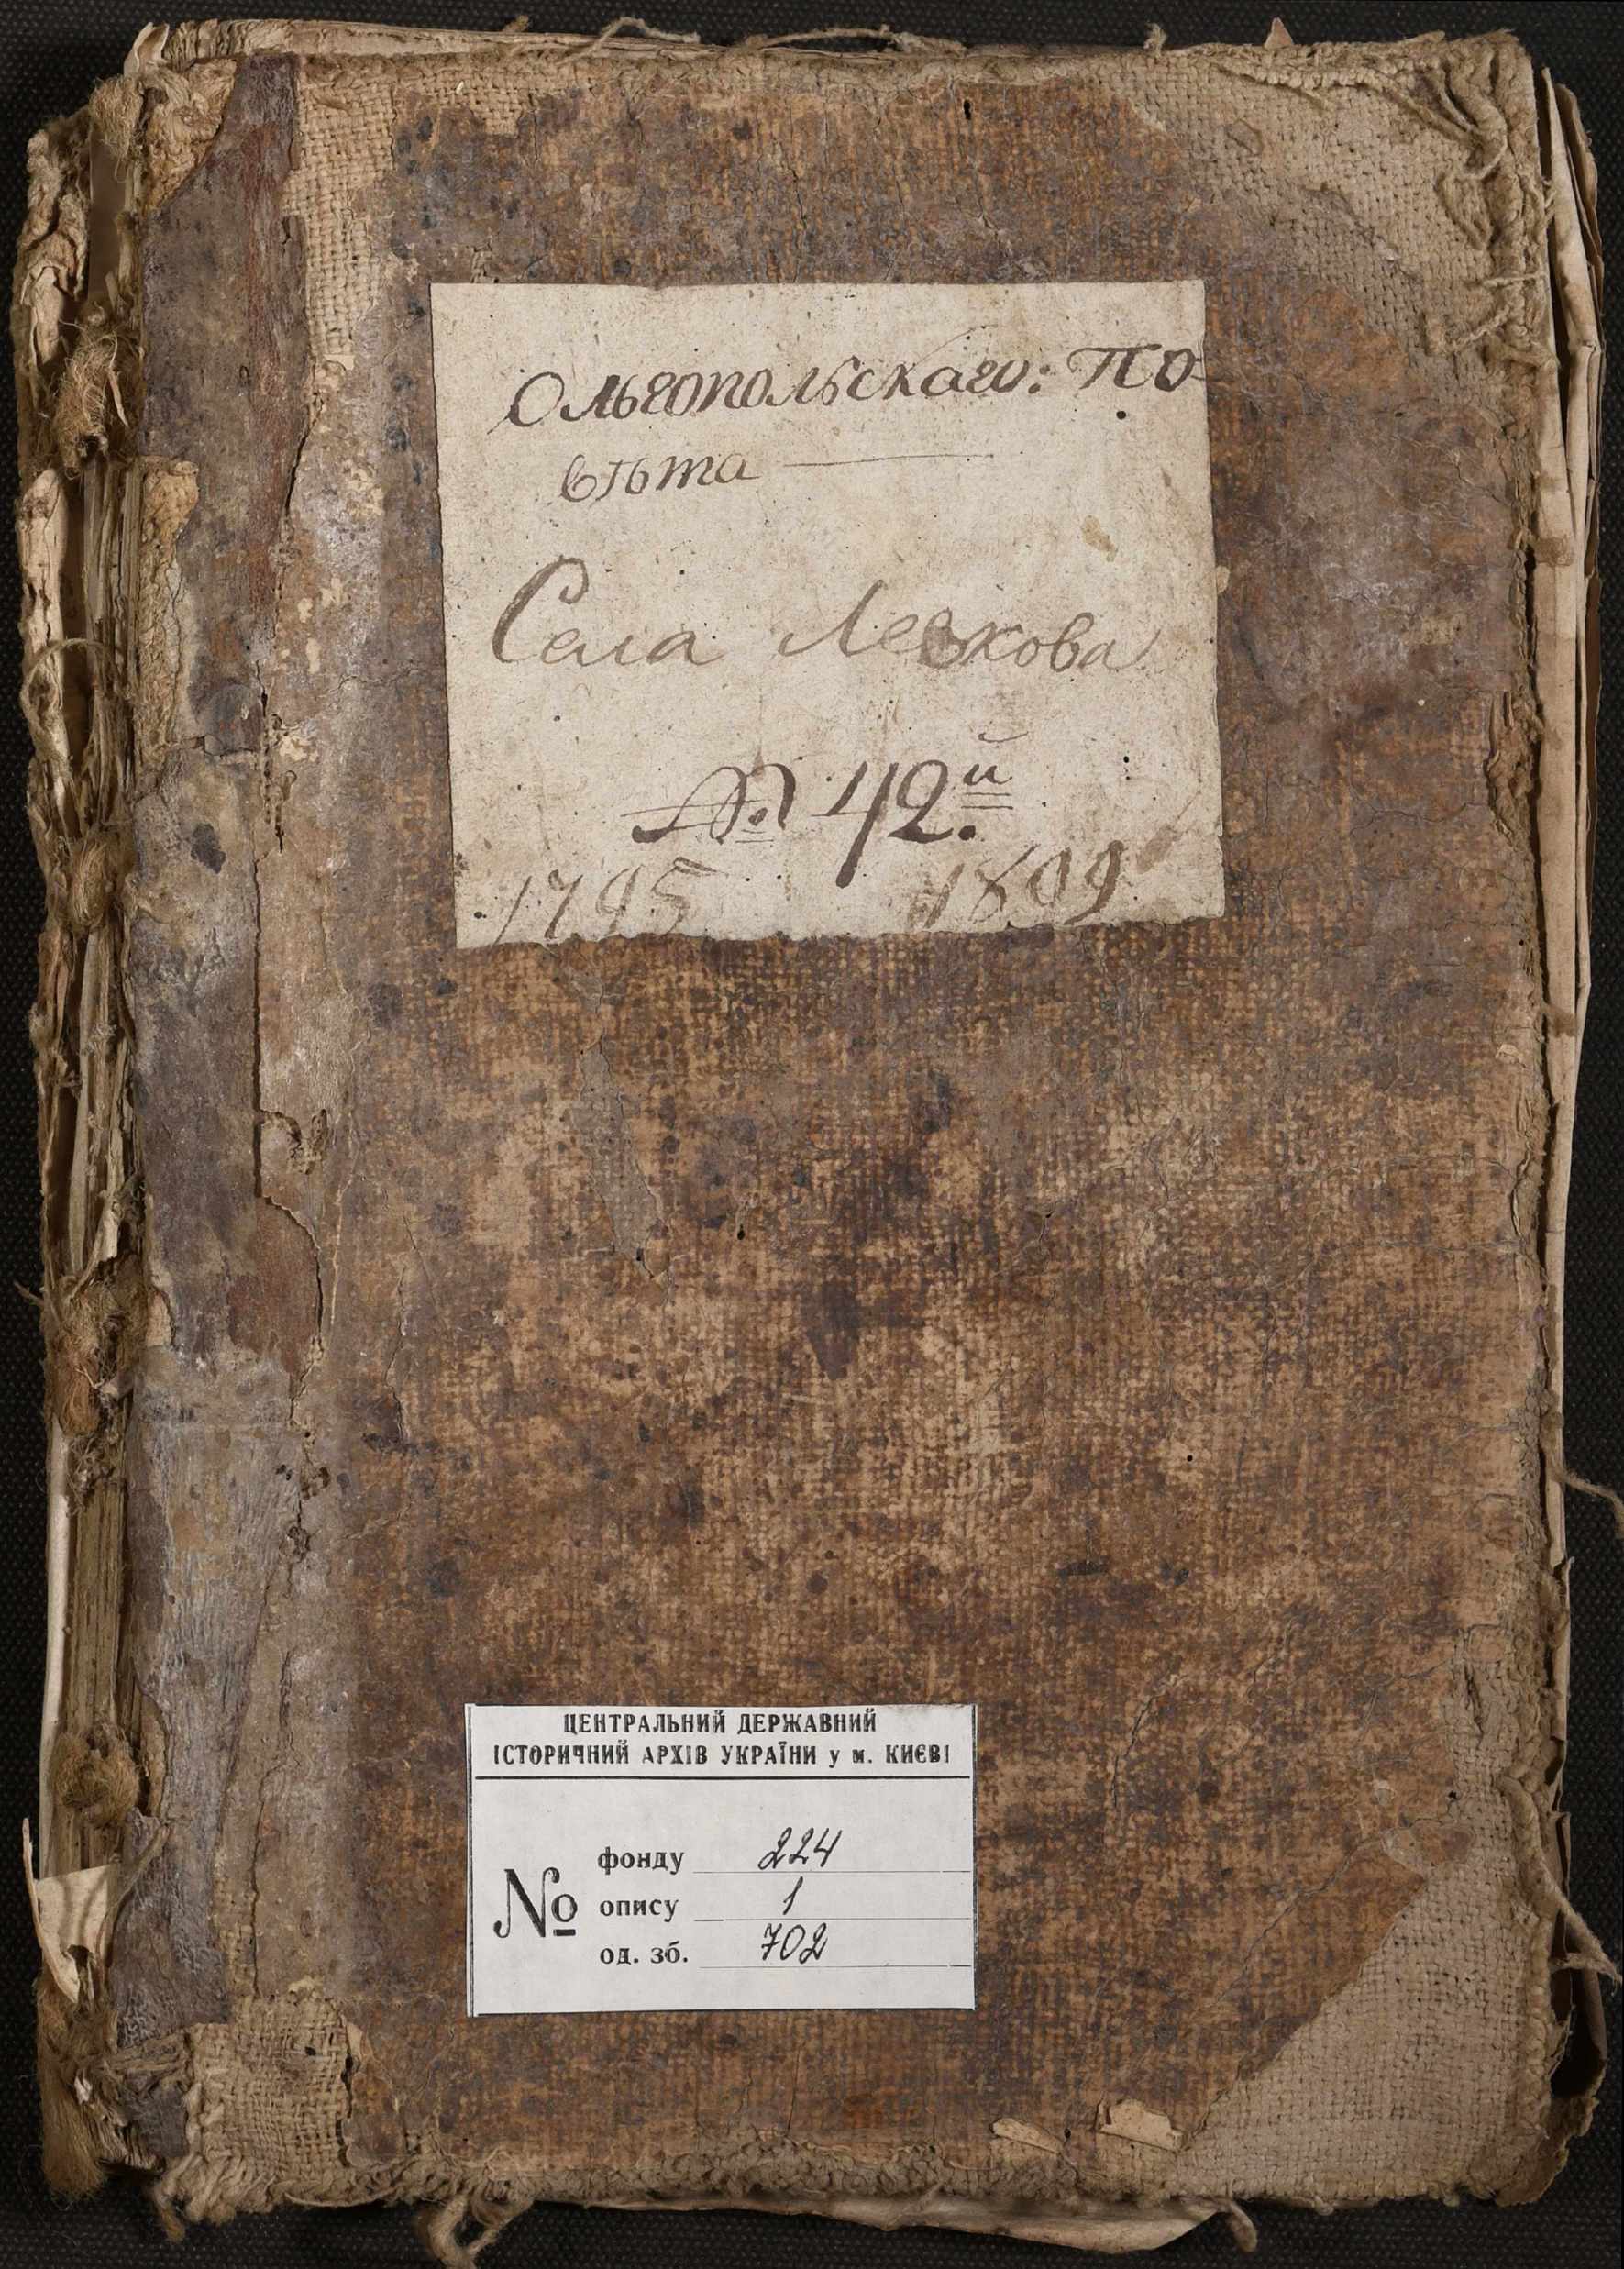 Ольгопольскаго: По-
вѣта
Села Левкова
№ 42.й
1795 1809
ЦЕНТРАЛЬНИЙ ДЕРЖАВНИЙ
ІСТОРИЧНИЙ АРХІВ УКРАЇНИ у м. КИЄВІ
№
фонду 224
опису 1
од. зб. 702